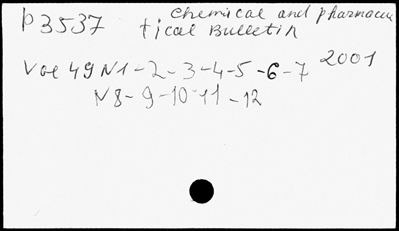 p3537 Chemical and pharmaceu
tical Bulletin
Vol 49 N1-2-3-4-5-6-7 2001
N8-9-10-11-12